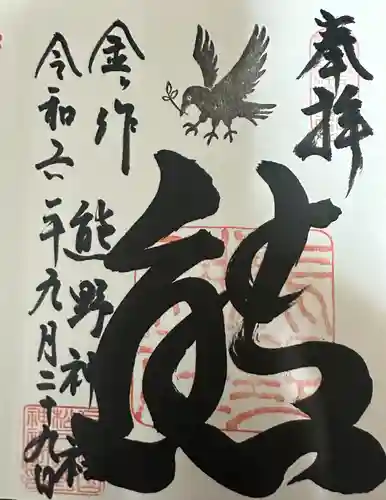 奉拝
熊
金ヶ作 熊野神社
令和六年九月二十九日